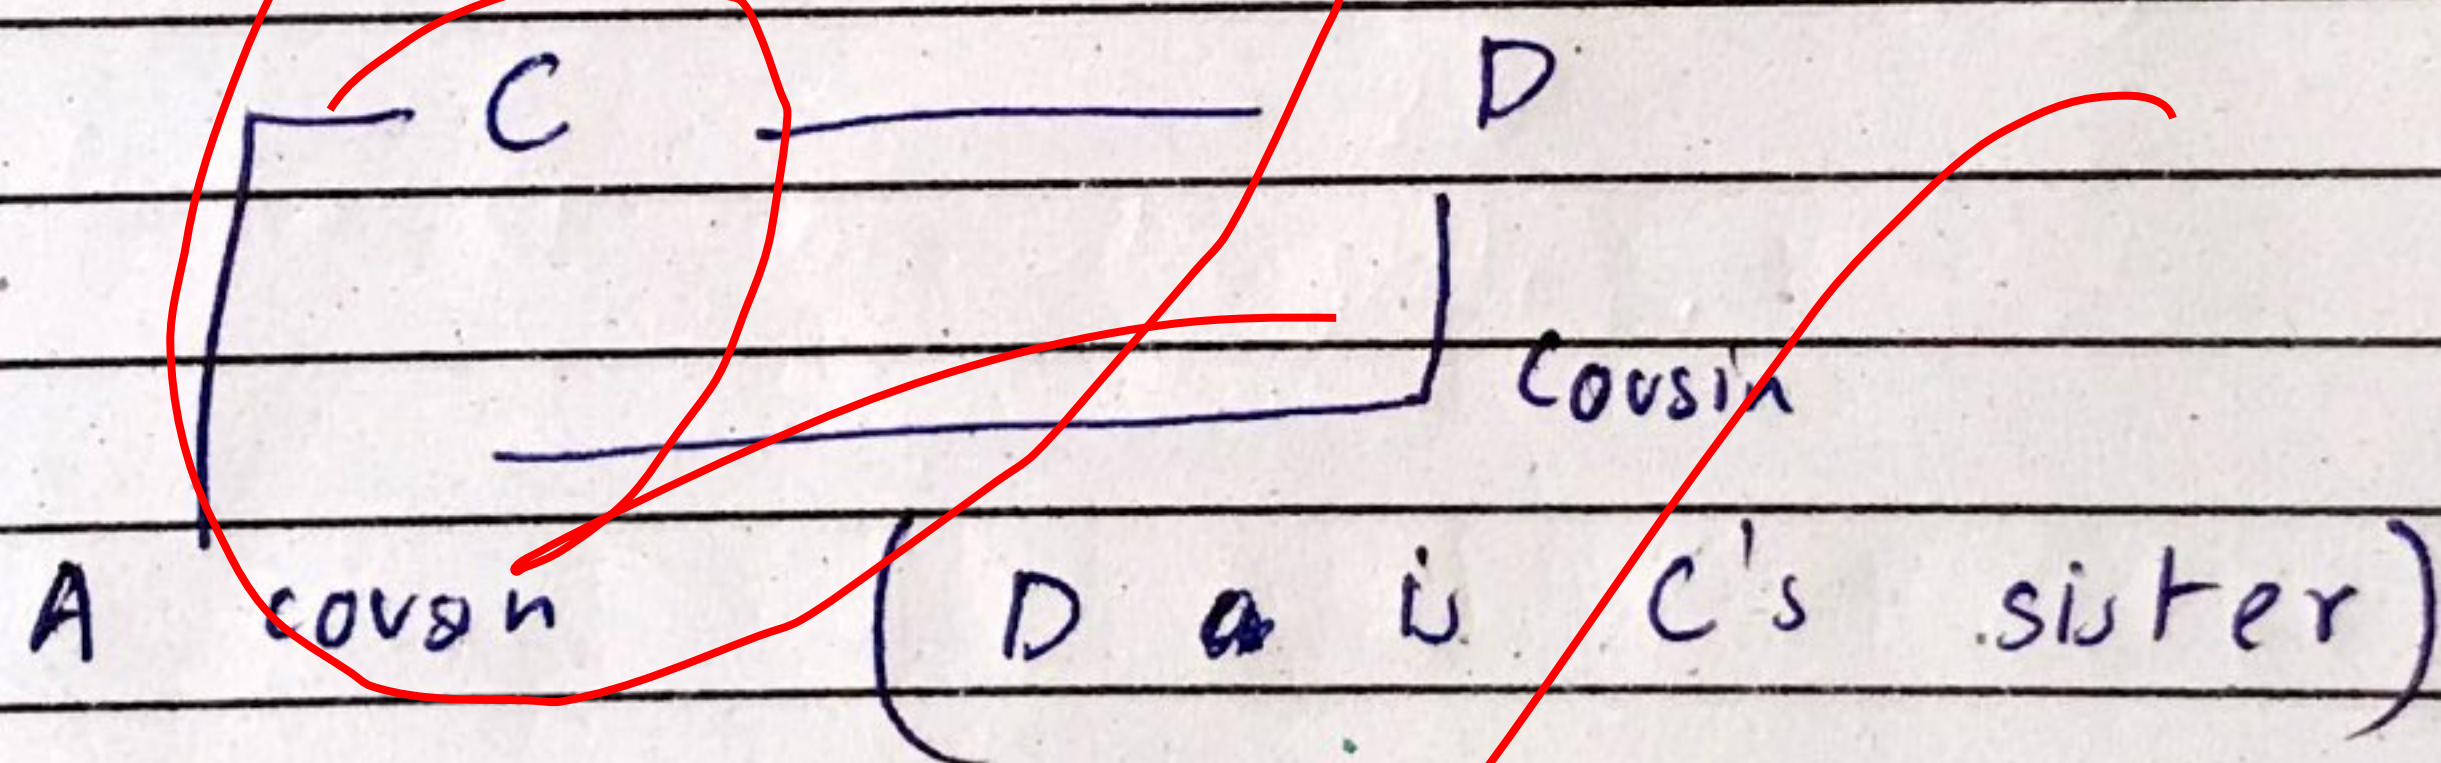 C D
Cousin
A couson (D is C's sister)